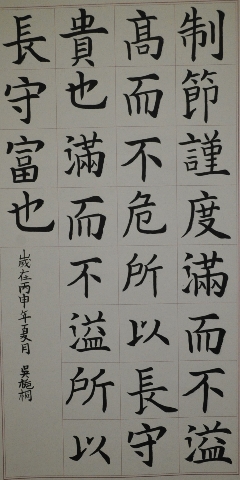 制節謹度滿而不溢
高而不危所以長守
貴也滿而不溢所以
長守富也
歲在丙申年夏月 吳